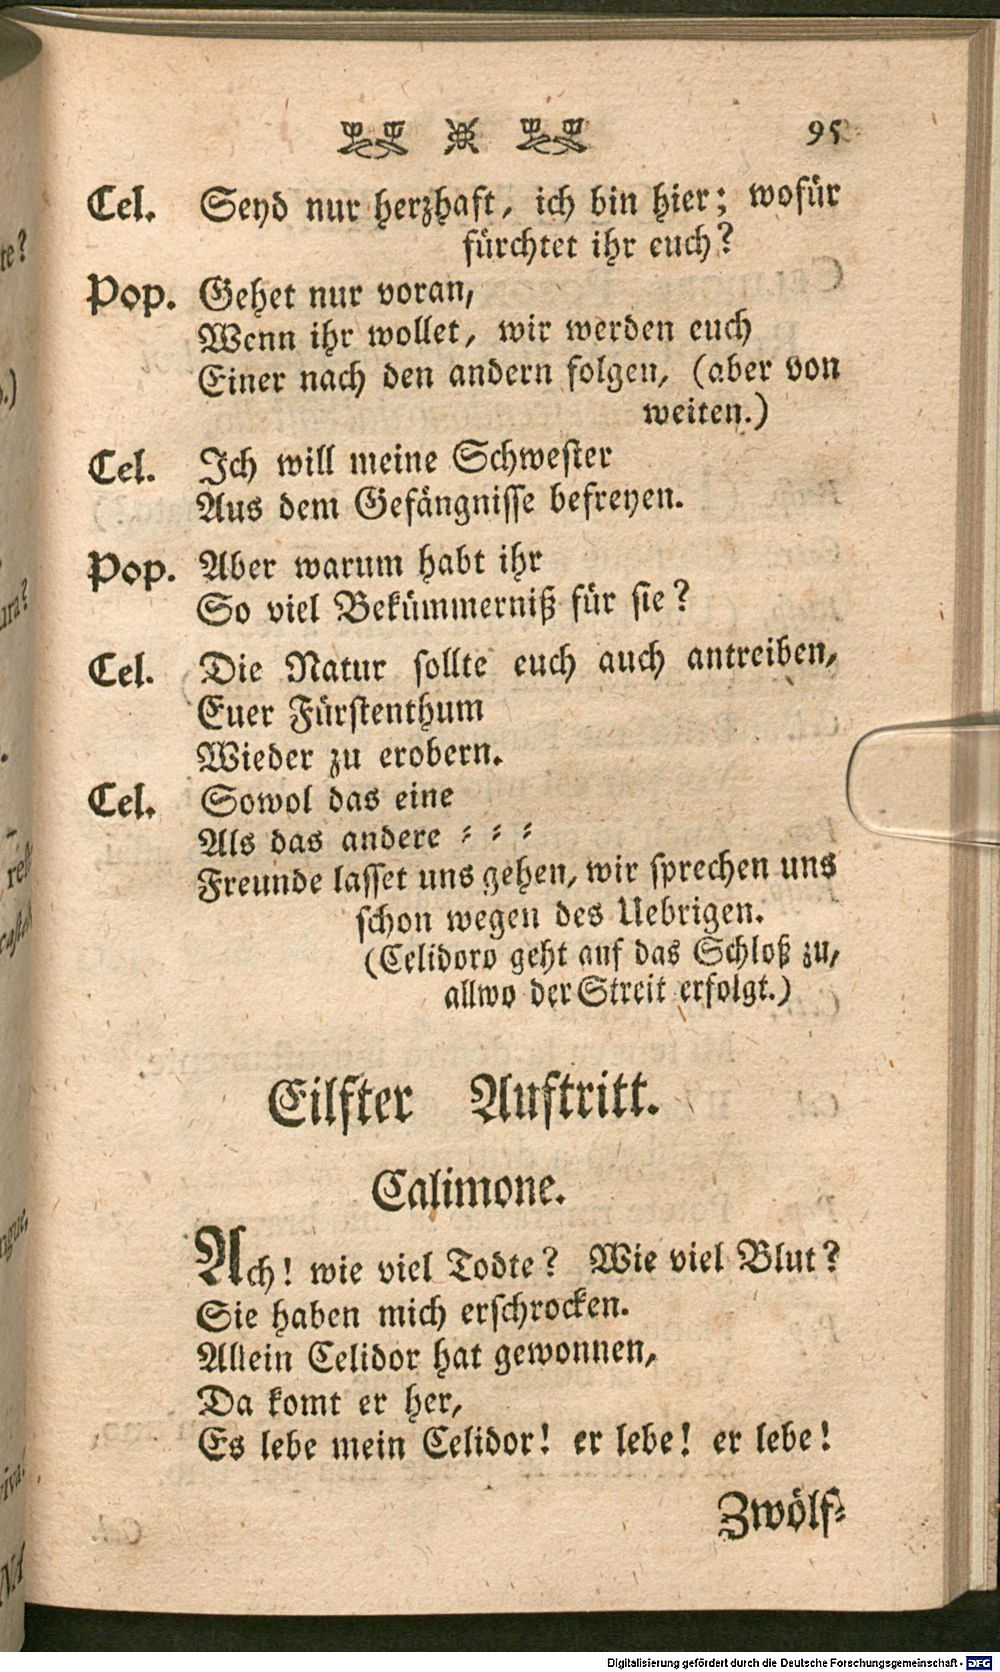 95
Cel. Seyd nur herzhaft, ich bin hier; wofür
fürchtet ihr euch?
Pop. Gehet nur voran,
Wenn ihr wollet, wir werden euch
Einer nach den andern folgen, (aber von
weiten.)
Cel. Ich will meine Schwester
Aus dem Gefängnisse befreyen.
Pop. Aber warum habt ihr
So viel Bekümmerniß für sie?
Cel. Die Natur sollte euch auch antreiben,
Euer Fürstenthum
Wieder zu erobern.
Cel. Sowol das eine
Als das andere = = =
Freunde lasset uns gehen, wir sprechen uns
schon wegen des Uebrigen.
(Celidoro geht auf das Schloß zu,
allwo der Streit erfolgt.)
Eilfter Auftritt.
Calimone.
Ach! wie viel Todte? Wie viel Blut?
Sie haben mich erschrocken.
Allein Celidor hat gewonnen,
Da komt er her,
Es lebe mein Celidor! er lebe! er lebe!
Zwölf=
Digitalisierung gefördert durch die Deutsche Forschungsgemeinschaft - DFG